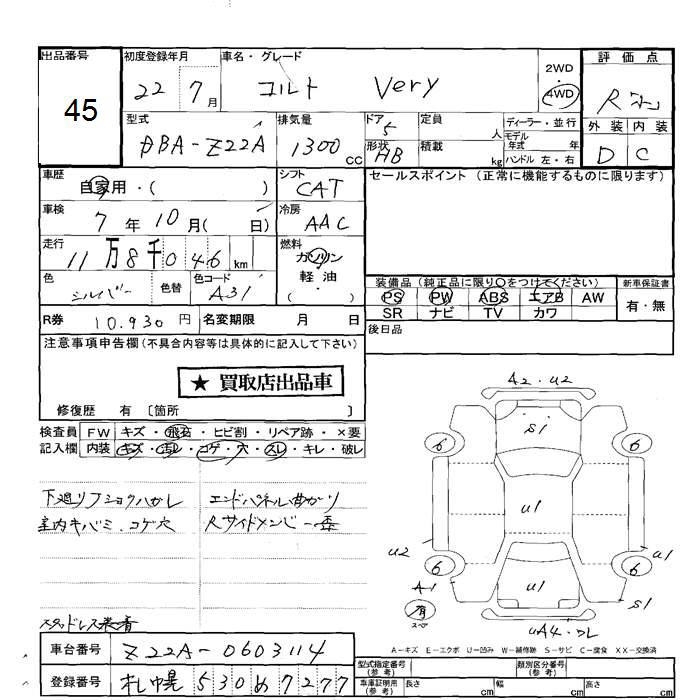 出品番号
45
初度登録年月
22 7月
車名・グレード
コルト Very
2WD
・
4WD
評価点
R
外装 内装
D C
型式
DBA-Z22A
排気量
1300 CC
ドア 5
形状 HB
定員 人
積載 kg
ディーラー・並行
モデル年式 年
ハンドル 左・右
車歴
自家用・( )
シフト
CAT
セールスポイント (正常に機能するものに限ります)
車検
7年 10月( 日)
冷房
AAC
走行
11万8千046 km
燃料
ガソリン
軽油
( ・ )
色
シルバー
色替
色コード
A31
装備品 (純正品に限り○をつけてください)
PS PW ABS エアB AW
SR ナビ TV カワ
新車保証書
有・無
R券 10.930円
名変期限 月 日
後日品
注意事項申告欄(不具合内容等は具体的に記入して下さい)
★ 買取店出品車
修復歴 有 〔箇所 〕
検査員記入欄
FW キズ・飛石・ヒビ割・リペア跡・×要
内装 キズ・汚レ・コゲ・穴・スレ・キレ・破レ
下廻リフショクハガレ エンドパネル曲がり
室内キバミ、コゲ穴 Rサイドメンバー歪
スタッドレス装着
A2・U2
S1
6 6
U1
U2 U1
6 6
A1 U1 S1
有
スペ
UA4・DL
A-キズ E-エクボ U-凹み W-補修跡 S-サビ C-腐食 XX-交換済
車台番号 Z22A-0603114
登録番号 札幌 530 め 7277
型式指定番号(参考)
類別区分番号(参考)
車庫証明用(参考) 長さ cm 幅 cm 高さ cm